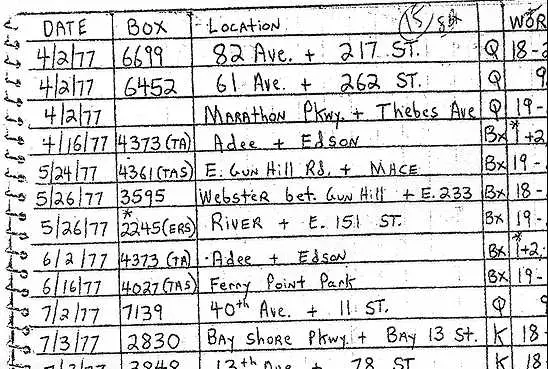 DATE BOX LOCATION 15/84 WOR
4/2/77 6699 82 Ave. + 217 ST. Q 18-2
4/2/77 6452 61 Ave. + 262 ST. Q 9
4/2/77 MARATHON PKWY. + Thebes Ave Q 19-
4/16/77 4373 (TA) Adee + EDSON Bx *1+2
5/24/77 4361 (TAS) E. GUN Hill Rd. + MACE Bx 19-
5/26/77 3595 Webster bet. GUN Hill + E. 233 Bx 18-
5/26/77 *2245 (ERS) RIVER + E. 151 ST. Bx 19-
6/2/77 4373 (TA) Adee + EDSON Bx *1+2,
6/16/77 4027 (TAS) Ferry Point Park Bx 19-
7/2/77 7139 40th Ave. + 11 ST. Q 9
7/3/77 2830 BAY SHORE PKWY. + BAY 13 St. K 18
3848 13th Ave. + 78 ST K 18